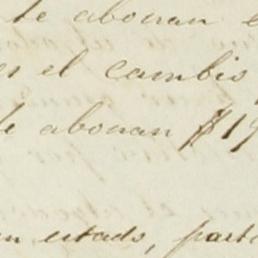 te abonan
es el cambio
te abonan $19
en estado, parte